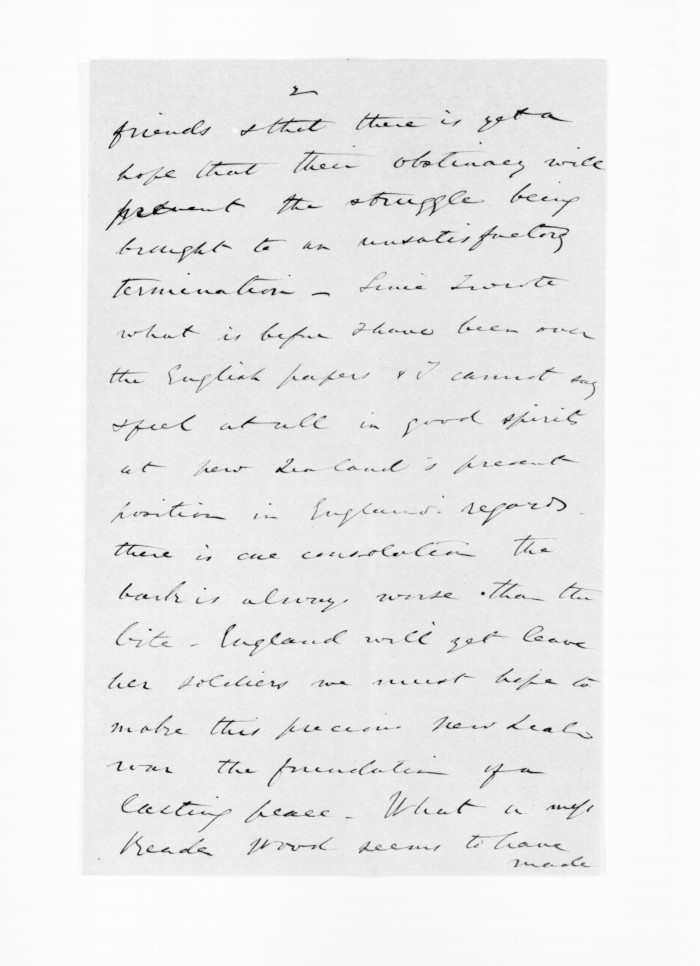 2
friends & that there is yet a
hope that their obstinacy will
prevent the struggle being
brought to an unsatisfactory
termination - Since I wrote
what is before I have been over
the English papers & I cannot say
I feel at all in good spirits
at New Zealand's present
position in England's regards.
there is one consolation the
bark is always worse than the
bite - England will yet leave
her soldiers we must hope to
make this precious New Zeald
war the foundation of a
lasting peace - What a mess
Reader Wood seems to have
made